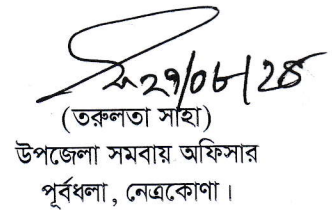 (তরুলতা সাহা)
উপজেলা সমবায় অফিসার
পূর্বধলা , নেত্রকোণা ।